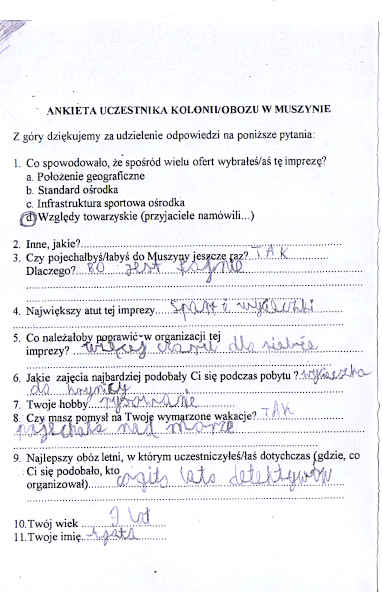 ANKIETA UCZESTNIKA KOLONII/OBOZU W MUSZYNIE
Z góry dziękujemy za udzielenie odpowiedzi na poniższe pytania:
1. Co spowodowało, że spośród wielu ofert wybrałeś/aś tę imprezę?
a. Położenie geograficzne
b. Standard ośrodka
c. Infrastruktura sportowa ośrodka
d. Względy towarzyskie (przyjaciele namówili...)
2. Inne, jakie?
3. Czy pojechałbyś/łabyś do Muszyny jeszcze raz? TAK
Dlaczego? BO jest fajnie
4. Największy atut tej imprezy
5. Co należałoby poprawić w organizacji tej
imprezy? więcej
6. Jakie zajęcia najbardziej podobały Ci się podczas pobytu? wycieczka
do
7. Twoje hobby rysowanie
8. Czy masz pomysł na Twoje wymarzone wakacje? TAK
nad morze
9. Najlepszy obóz letni, w którym uczestniczyłeś/łaś dotychczas (gdzie, co
Ci się podobało, kto
organizował) lato detektywów
10. Twój wiek 9 lat
11. Twoje imię